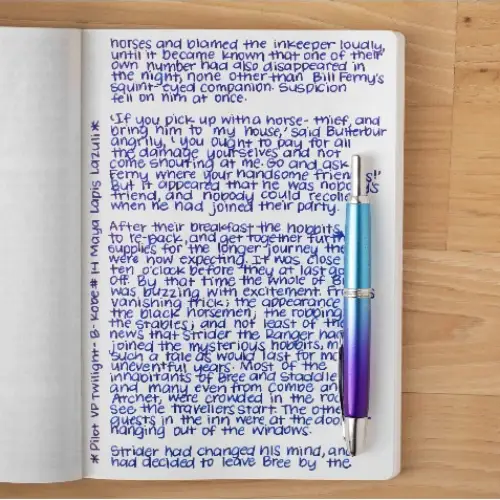 horses and blamed the inkeeper loudly,
until it became known that one of their
own number had also disappeared in
the night, none other than Bill Ferny's
squint-eyed companion. Suspicion
fell on him at once.
'If you pick up with a horse-thief, and
bring him to my house,' said Butterbur
angrily, 'you ought to pay for all
the damage yourselves and not
come shouting at me. Go and ask
Ferny where your handsome
But it appeared that he was
friend, and nobody could
when he had joined their party.
After their breakfast the hobbits
to re-pack, and get together
supplies for the longer journey
were now expecting. It was close
ten o'clock before they at last
off. By that time the whole of
was buzzing with excitement.
vanishing trick; the appearance
the black horsemen; the robbing
the stables; and not least of the
news that Strider the Ranger
joined the mysterious hobbits,
such a tale as would last for
uneventful years. Most of the
inhabitants of Bree and Staddle
and many even from Combe and
Archet, were crowded in the
see the travellers start. The other
guests in the inn were at the
hanging out of the windows.
Strider had changed his mind, and
had decided to leave Bree by the
*Pilot VP Twilight B-Kobe #14 Maya Lapis Lazuli*